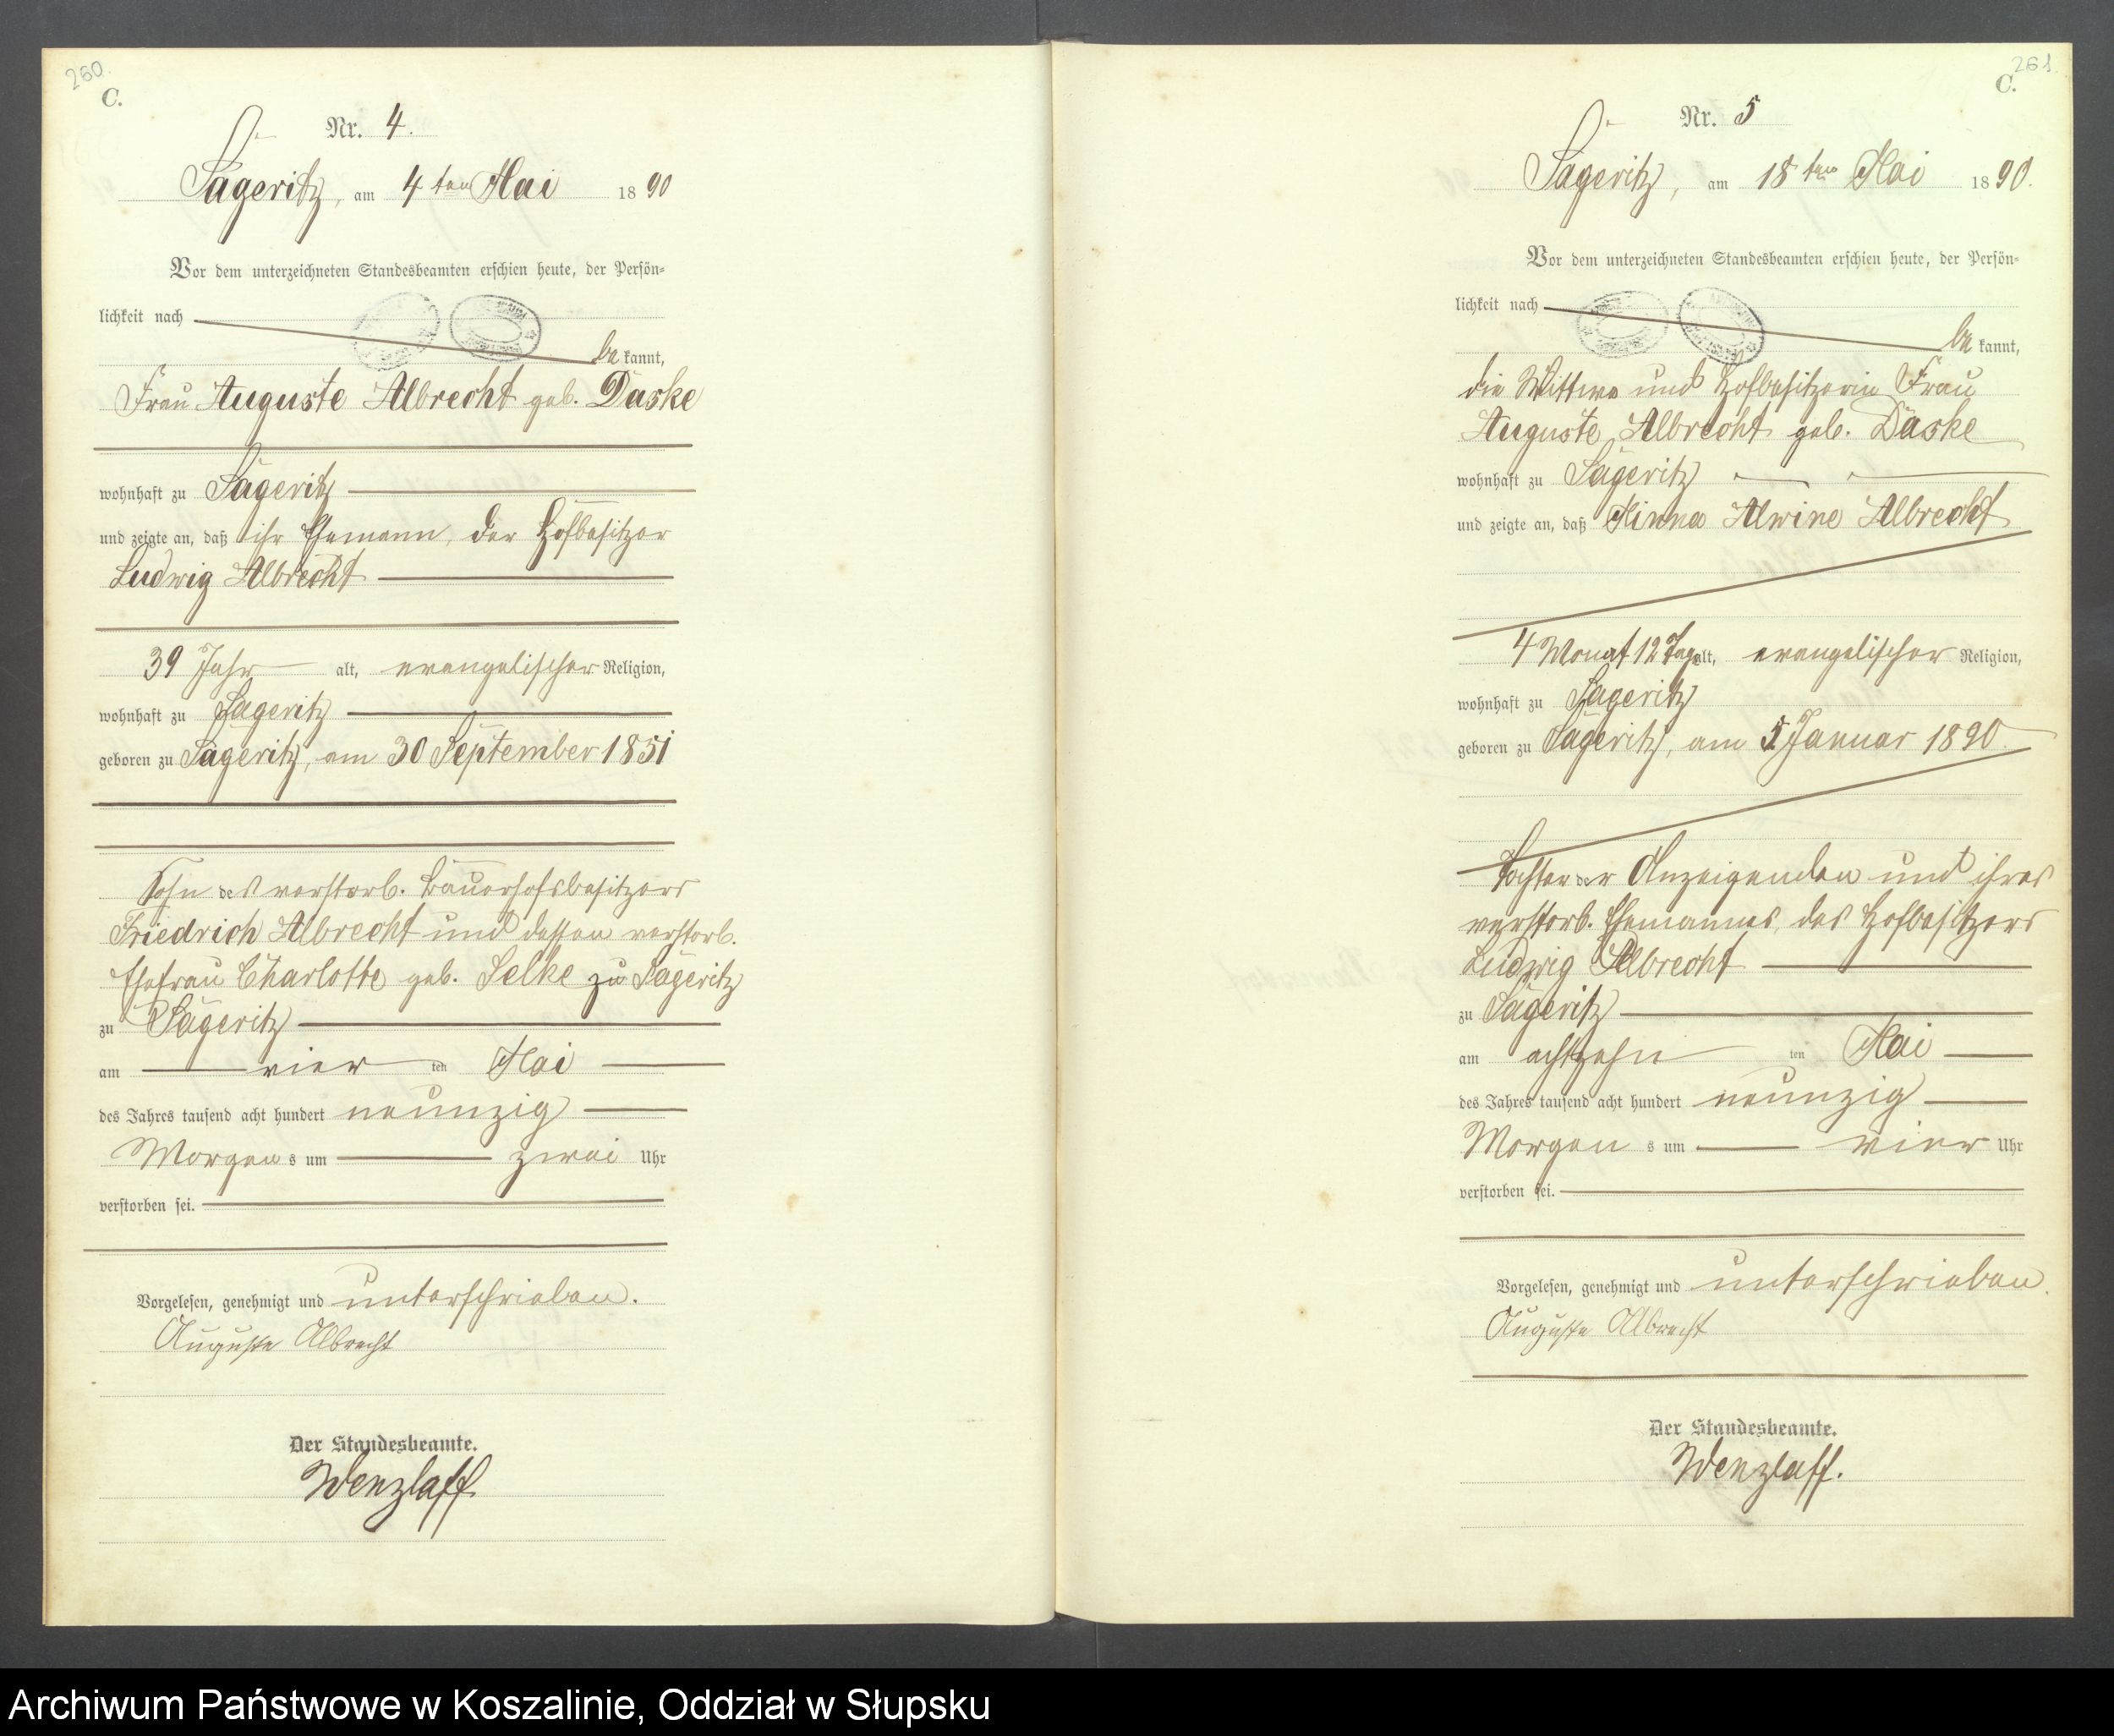 260.
C.
Nr. 4.
Sageritz, am 4ten Mai 1890
Vor dem unterzeichneten Standesbeamten erschien heute, der Persön-
lichkeit nach
be kannt,
Frau Auguste Albrecht geb. Daske
wohnhaft zu Sageritz
und zeigte an, daß ihr Ehemann, der Hofbesitzer
Ludwig Albrecht
39 Jahr alt, evangelischer Religion,
wohnhaft zu Sageritz
geboren zu Sageritz, am 30 September 1851
Sohn des verstorb. Bauerhofsbesitzers
Friedrich Albrecht und dessen verstorb.
Ehefrau Charlotte geb. Selke zu Sageritz
zu Sageritz
am vier ten Mai
des Jahres tausend acht hundert neunzig
Morgens um zwei Uhr
verstorben sei.
Vorgelesen, genehmigt und unterschrieben.
Auguste Albrecht
Der Standesbeamte.
Wenzlaff
261.
C.
Nr. 5
Sageritz, am 18ten Mai 1890.
Vor dem unterzeichneten Standesbeamten erschien heute, der Persön-
lichkeit nach
be kannt,
die Wittwe und Hofbesitzerin Frau
Auguste Albrecht geb. Daske
wohnhaft zu Sageritz
und zeigte an, daß Minna Alwine Albrecht
4 Monat 12 Tage alt, evangelischer Religion,
wohnhaft zu Sageritz
geboren zu Sageritz, am 5. Januar 1890.
Tochter der Anzeigenden und ihres
verstorb. Ehemannes, des Hofbesitzers
Ludwig Albrecht
zu Sageritz
am achtzehn ten Mai
des Jahres tausend acht hundert neunzig
Morgens um vier Uhr
verstorben sei.
Vorgelesen, genehmigt und unterschrieben.
Auguste Albrecht
Der Standesbeamte.
Wenzlaff.
Archiwum Państwowe w Koszalinie, Oddział w Słupsku